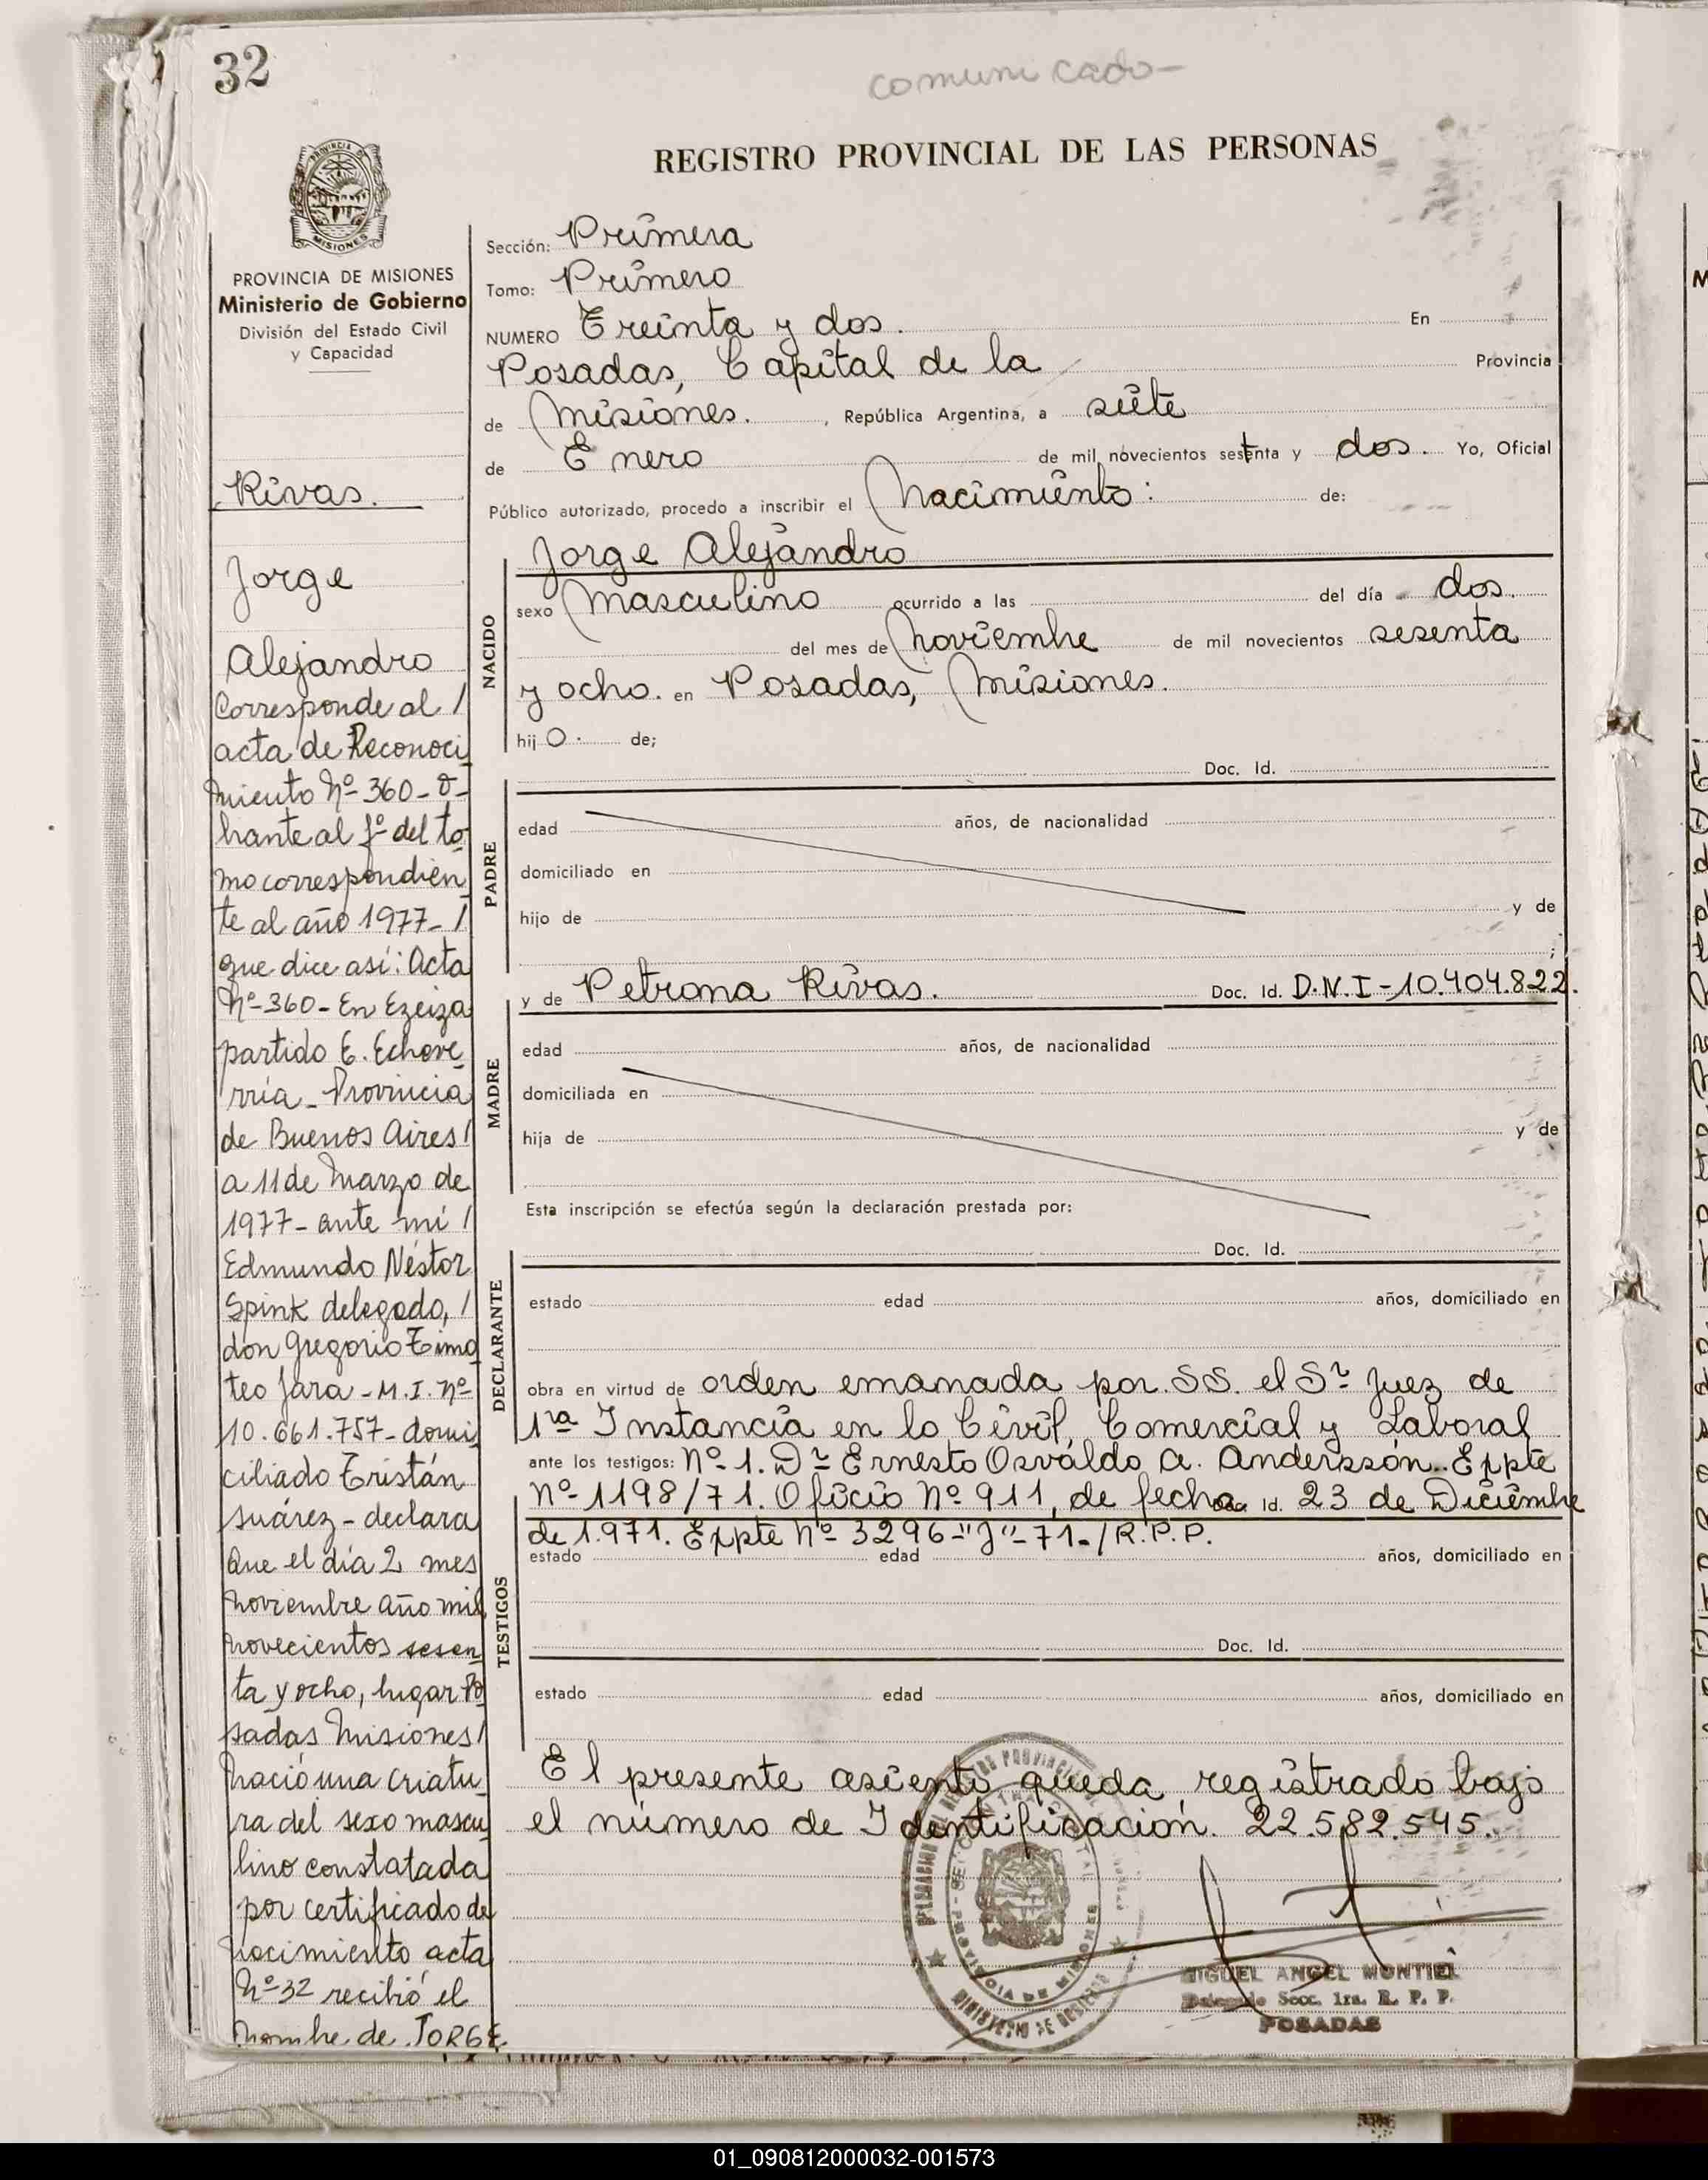 32
comunicado-
REGISTRO PROVINCIAL DE LAS PERSONAS
PROVINCIA DE MISIONES
Ministerio de Gobierno
División del Estado Civil
y Capacidad
Rivas.
Jorge
Alejandro
Corresponde al /
acta de Reconoci
miento Nº 360 - O-
brante al fº del to
mo correspondien
te al año 1977- /
que dice asi: Acta
Nº-360- En Ezeiza
partido E. Echeve
rría - Provincia
de Buenos Aires /
a 11 de Marzo de
1977- ante mi /
Edmundo Néstor
Spink delegado, /
don Gregorio Timo
teo Jara - M.I. Nº
10.661.757- domi
ciliado Tristán
Suárez - declara
Que el día 2 mes
Noviembre año mil
novecientos sesen
ta y ocho, lugar Po
sadas Misiones /
Nació una criatu
ra del sexo mascu
lino constatada
por certificado de
nacimiento acta
Nº 32 recibió el
nombre de JORGE
Sección: Primera
Tomo: Primero
NUMERO Treinta y dos. En
Posadas, Capital de la Provincia
de Misiones. , República Argentina, a siete
de Enero de mil novecientos setenta y dos. Yo, Oficial
Público autorizado, procedo a inscribir el Nacimiento: de:
NACIDO
Jorge Alejandro
sexo Masculino ocurrido a las del día dos.
del mes de Noviembre de mil novecientos sesenta
y ocho. en Posadas, Misiones.
hij o. de;
Doc. Id.
PADRE
edad años, de nacionalidad
domiciliado en
hijo de y de
;
y de Petrona Rivas. Doc. Id. D.N.I-10.404.822.
MADRE
edad años, de nacionalidad
domiciliada en
hija de y de
Esta inscripción se efectúa según la declaración prestada por:
Doc. Id.
DECLARANTE
estado edad años, domiciliado en
obra en virtud de orden emanada por S.S. el Sr Juez de
1ra Instancia en lo Civil, Comercial y Laboral
ante los testigos: Nº 1. Dr Ernesto Osvaldo A. Anderssón. Eppte
Nº 1198/71. Oficio Nº 911, de fecha Id. 23 de Diciembre
de 1.971. Eppte Nº 3296-"J"-71-/R.P.P.
TESTIGOS
estado edad años, domiciliado en
Doc. Id.
estado edad años, domiciliado en
El presente asiento queda registrado bajo
el número de Identificación. 22.582.545.
MIGUEL ANGEL MONTIEL
Delegado Secc. 1ra. R. P. P.
POSADAS
01_090812000032-001573